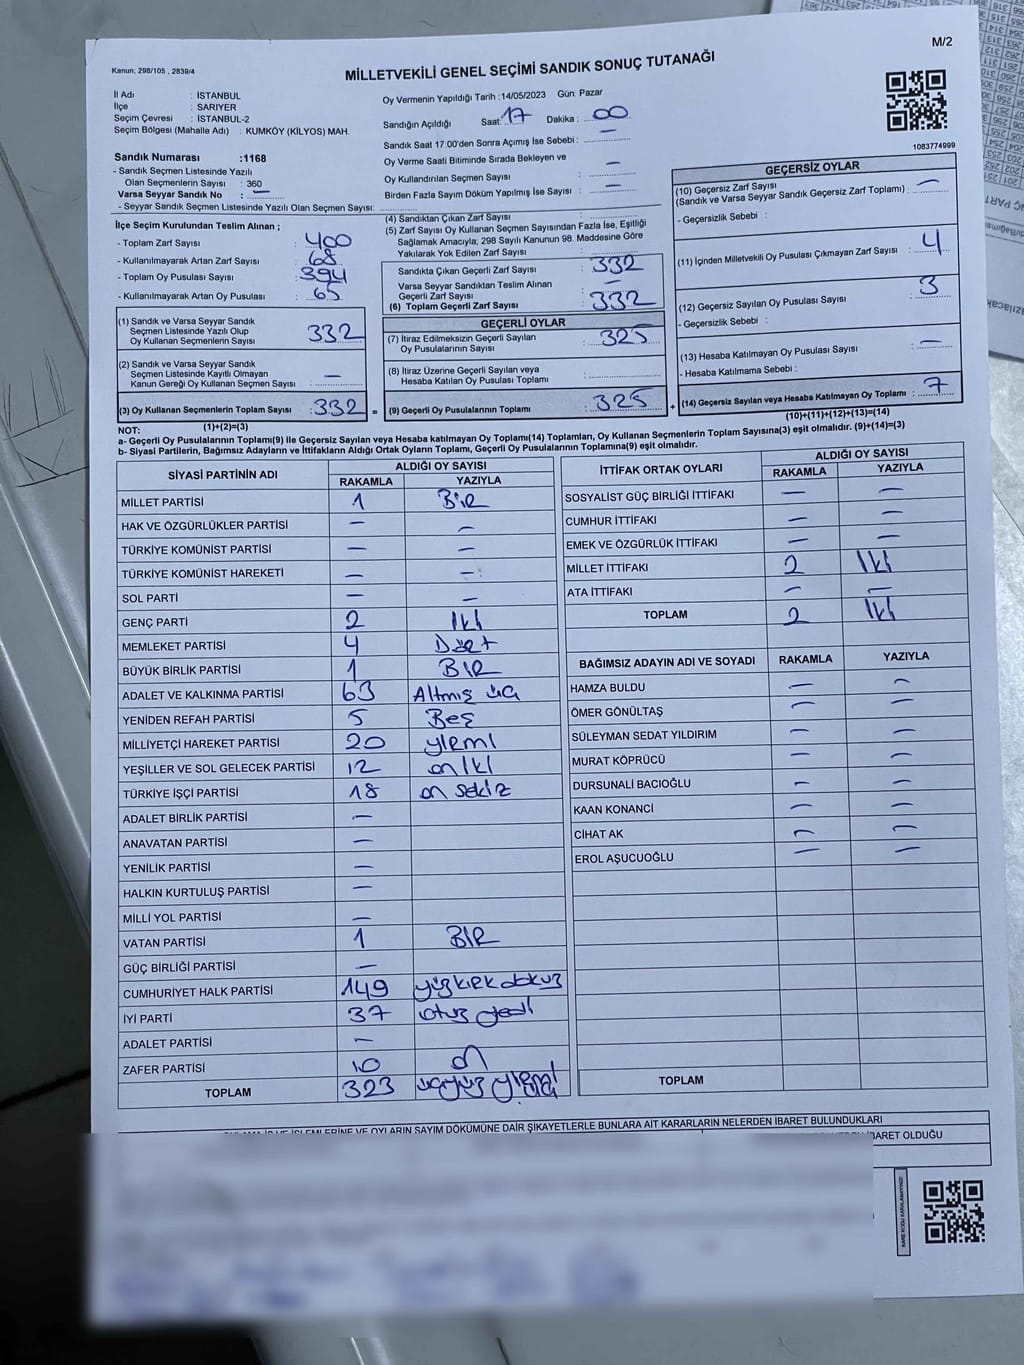 M/2
Kanun, 298/105 , 2839/4
MİLLETVEKİLİ GENEL SEÇİMİ SANDIK SONUÇ TUTANAĞI
İl Adı : İSTANBUL
İlçe : SARIYER
Seçim Çevresi : İSTANBUL-2
Seçim Bölgesi (Mahalle Adı) : KUMKÖY (KİLYOS) MAH.
Sandık Numarası :1168
- Sandık Seçmen Listesinde Yazılı
Olan Seçmenlerin Sayısı : 360
Varsa Seyyar Sandık No : —
- Seyyar Sandık Seçmen Listesinde Yazılı Olan Seçmen Sayısı:
Oy Vermenin Yapıldığı Tarih :14/05/2023 Gün: Pazar
Sandığın Açıldığı Saat: 17 Dakika : 00
Sandık Saat 17:00'den Sonra Açımış İse Sebebi : —
Oy Verme Saati Bitiminde Sırada Bekleyen ve
Oy Kullandırılan Seçmen Sayısı : —
Birden Fazla Sayım Döküm Yapılmış İse Sayısı : —
1083774999
İlçe Seçim Kurulundan Teslim Alınan ;
- Toplam Zarf Sayısı : 400
- Kullanılmayarak Artan Zarf Sayısı : 68
- Toplam Oy Pusulası Sayısı : 394
- Kullanılmayarak Artan Oy Pusulası : 65
(1) Sandık ve Varsa Seyyar Sandık
Seçmen Listesinde Yazılı Olup
Oy Kullanan Seçmenlerin Sayısı : 332
(2) Sandık ve Varsa Seyyar Sandık
Seçmen Listesinde Kayıtlı Olmayan
Kanun Gereği Oy Kullanan Seçmen Sayısı : —
(3) Oy Kullanan Seçmenlerin Toplam Sayısı : 332 =
(1)+(2)=(3)
(4) Sandıktan Çıkan Zarf Sayısı :
(5) Zarf Sayısı Oy Kullanan Seçmen Sayısından Fazla İse, Eşitliği
Sağlamak Amacıyla; 298 Sayılı Kanunun 98. Maddesine Göre
Yakılarak Yok Edilen Zarf Sayısı :
Sandıkta Çıkan Geçerli Zarf Sayısı : 332
Varsa Seyyar Sandıktan Teslim Alınan
Geçerli Zarf Sayısı : —
(6) Toplam Geçerli Zarf Sayısı : 332
GEÇERLİ OYLAR
(7) İtiraz Edilmeksizin Geçerli Sayılan
Oy Pusulalarının Sayısı : 325
(8) İtiraz Üzerine Geçerli Sayılan veya
Hesaba Katılan Oy Pusulası Toplamı :
(9) Geçerli Oy Pusulalarının Toplamı : 325 +
GEÇERSİZ OYLAR
(10) Geçersiz Zarf Sayısı
(Sandık ve Varsa Seyyar Sandık Geçersiz Zarf Toplamı) : —
- Geçersizlik Sebebi :
(11) İçinden Milletvekili Oy Pusulası Çıkmayan Zarf Sayısı : 4
(12) Geçersiz Sayılan Oy Pusulası Sayısı : 3
- Geçersizlik Sebebi :
(13) Hesaba Katılmayan Oy Pusulası Sayısı : —
- Hesaba Katılmama Sebebi :
(14) Geçersiz Sayılan veya Hesaba Katılmayan Oy Toplamı : 7
(10)+(11)+(12)+(13)=(14)
NOT:
a- Geçerli Oy Pusulalarının Toplamı(9) ile Geçersiz Sayılan veya Hesaba katılmayan Oy Toplamı(14) Toplamları, Oy Kullanan Seçmenlerin Toplam Sayısına(3) eşit olmalıdır. (9)+(14)=(3)
b- Siyasi Partilerin, Bağımsız Adayların ve İttifakların Aldığı Ortak Oyların Toplamı, Geçerli Oy Pusulalarının Toplamına(9) eşit olmalıdır.
SİYASİ PARTİNİN ADI ALDIĞI OY SAYISI
RAKAMLA YAZIYLA
MİLLET PARTİSİ 1 BİR
HAK VE ÖZGÜRLÜKLER PARTİSİ — —
TÜRKİYE KOMÜNİST PARTİSİ — —
TÜRKİYE KOMÜNİST HAREKETİ — —
SOL PARTİ — —
GENÇ PARTİ 2 İki
MEMLEKET PARTİSİ 4 Dört
BÜYÜK BİRLİK PARTİSİ 1 BİR
ADALET VE KALKINMA PARTİSİ 63 Altmış üç
YENİDEN REFAH PARTİSİ 5 Beş
MİLLİYETÇİ HAREKET PARTİSİ 20 yirmi
YEŞİLLER VE SOL GELECEK PARTİSİ 12 on iki
TÜRKİYE İŞÇİ PARTİSİ 18 on sekiz
ADALET BİRLİK PARTİSİ —
ANAVATAN PARTİSİ —
YENİLİK PARTİSİ —
HALKIN KURTULUŞ PARTİSİ —
MİLLİ YOL PARTİSİ —
VATAN PARTİSİ 1 BİR
GÜÇ BİRLİĞİ PARTİSİ —
CUMHURİYET HALK PARTİSİ 149 yüzkırkdokuz
İYİ PARTİ 37 otuz yedi
ADALET PARTİSİ —
ZAFER PARTİSİ 10 on
TOPLAM 323 üçyüz
İTTİFAK ORTAK OYLARI ALDIĞI OY SAYISI
RAKAMLA YAZIYLA
SOSYALİST GÜÇ BİRLİĞİ İTTİFAKI — —
CUMHUR İTTİFAKI — —
EMEK VE ÖZGÜRLÜK İTTİFAKI — —
MİLLET İTTİFAKI 2 İki
ATA İTTİFAKI — —
TOPLAM 2 İki
BAĞIMSIZ ADAYIN ADI VE SOYADI RAKAMLA YAZIYLA
HAMZA BULDU — —
ÖMER GÖNÜLTAŞ — —
SÜLEYMAN SEDAT YILDIRIM — —
MURAT KÖPRÜCÜ — —
DURSUNALİ BACIOĞLU — —
KAAN KONANCİ — —
CİHAT AK — —
EROL AŞUCUOĞLU — —
TOPLAM
VE OYLARIN SAYIM DÖKÜMÜNE DAİR ŞİKAYETLERLE BUNLARA AİT KARARLARIN NELERDEN İBARET BULUNDUKLARI
OLDUĞU